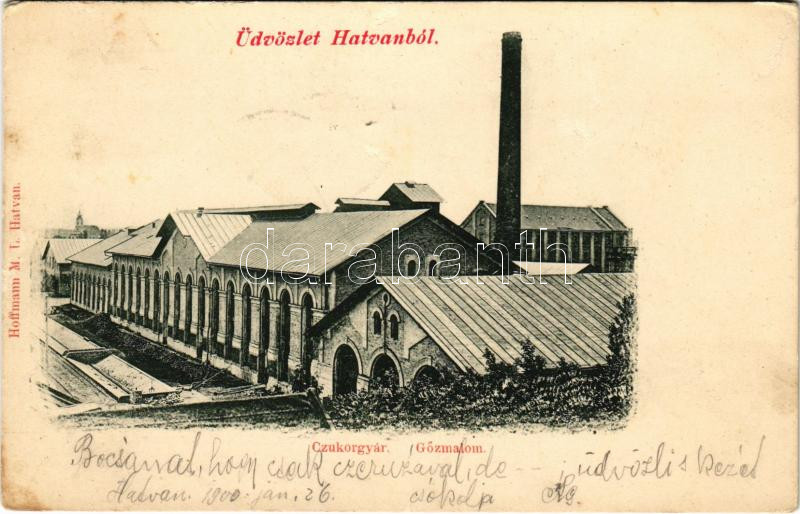 Üdvözlet Hatvanból.
Hoffmann M. L. Hatvan.
darabanth
Czukorgyár. Gőzmalom.
Bocsánat, hogy csak czeruzával, de -- üdvözli s kezét
Hatvan. 1900. jan. 26. csókolja